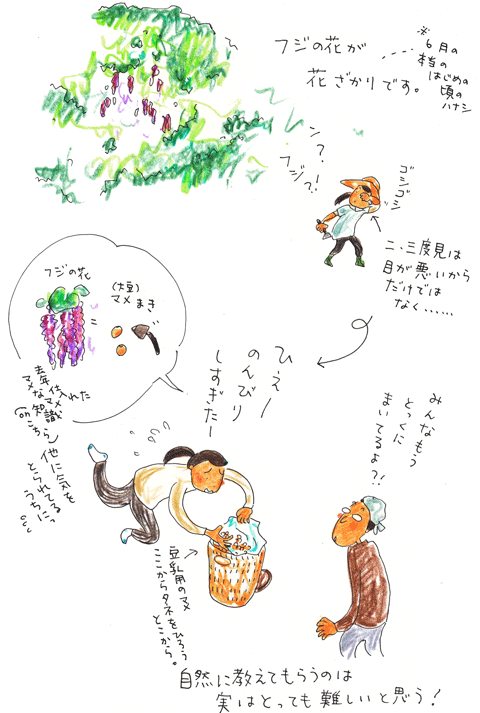 フジの花が
花ざかりです。
※6月の
はじめの
頃の
ハナシ
ン?
フジ?!
ゴシゴシ
二、三度見は
目が悪いから
だけでは
なく……
フジの花
=
(大豆)
マメまき
去年仕入れた
マメなマメ
知識
(onこちら)
他に気を
とられてるう
うちに…
ひえー
のんびり
しすぎたー
みんなもう
とっくに
まいてるよ?!
豆乳用のマメ
ここからタネをひろう
とこから。
自然に教えてもらうのは
実はとっても難しいと思う!